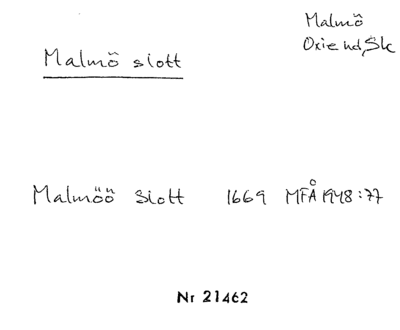 Malmö
Oxie hd, Sk
Malmö slott
Malmöö Slott 1669 MFÅ 1948:77
Nr 21462